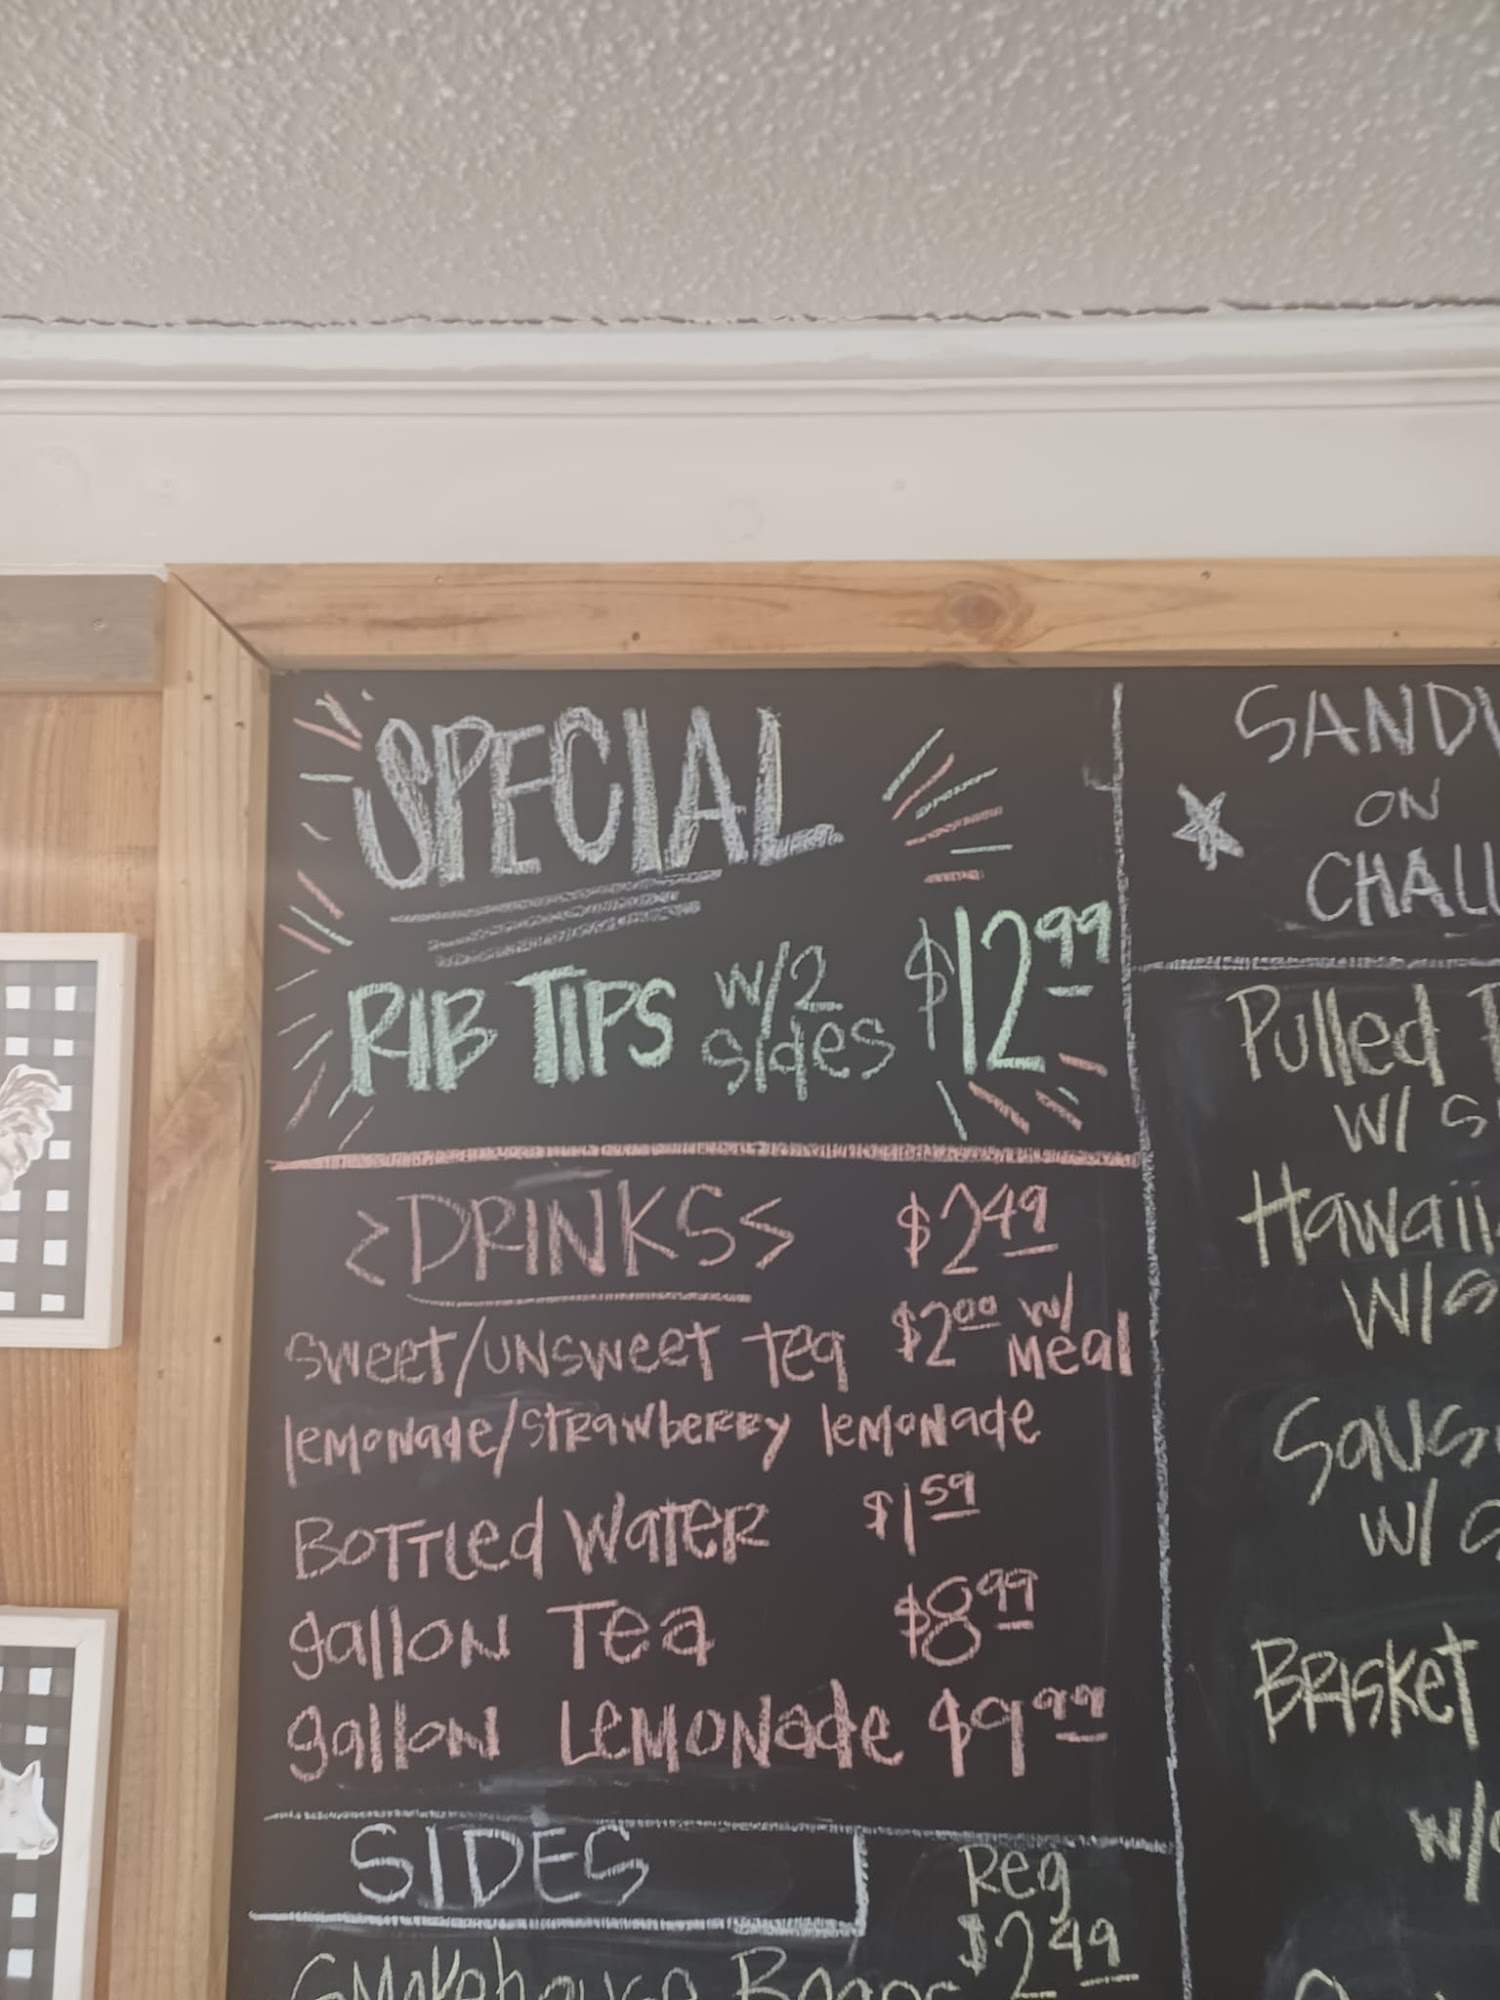 SPECIAL
RIB TIPS w/2 sides $12.99
>DRINKS< $2.49
sweet/unsweet tea $2.00 w/ Meal
lemonade/strawberry lemonade
Bottled Water $1.59
gallon Tea $8.99
gallon Lemonade $9.99
SIDES
Reg
$2.49
Smokehouse Beans
ON
Pulled
w/
w/
w/
BRISKET
w/